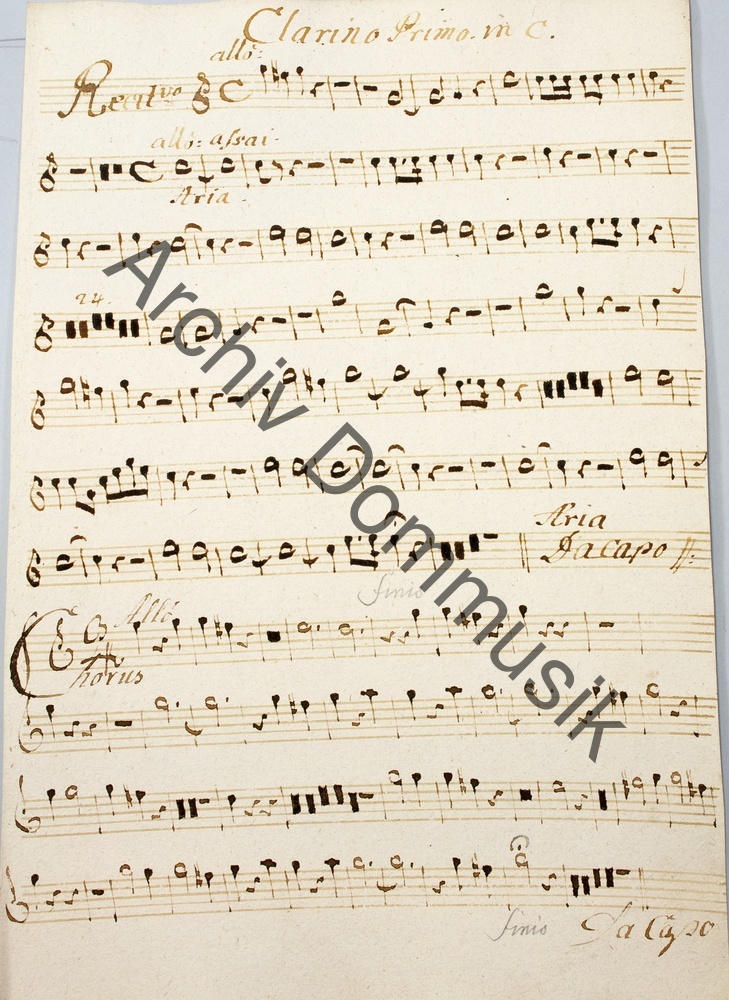 Clarino Primo. in C.
allo:
Recit.vo
allo: assai.
Aria.
24.
Aria
Da capo
finis
Allo
Chorus
finis
Da Capo
Archiv Dommusik